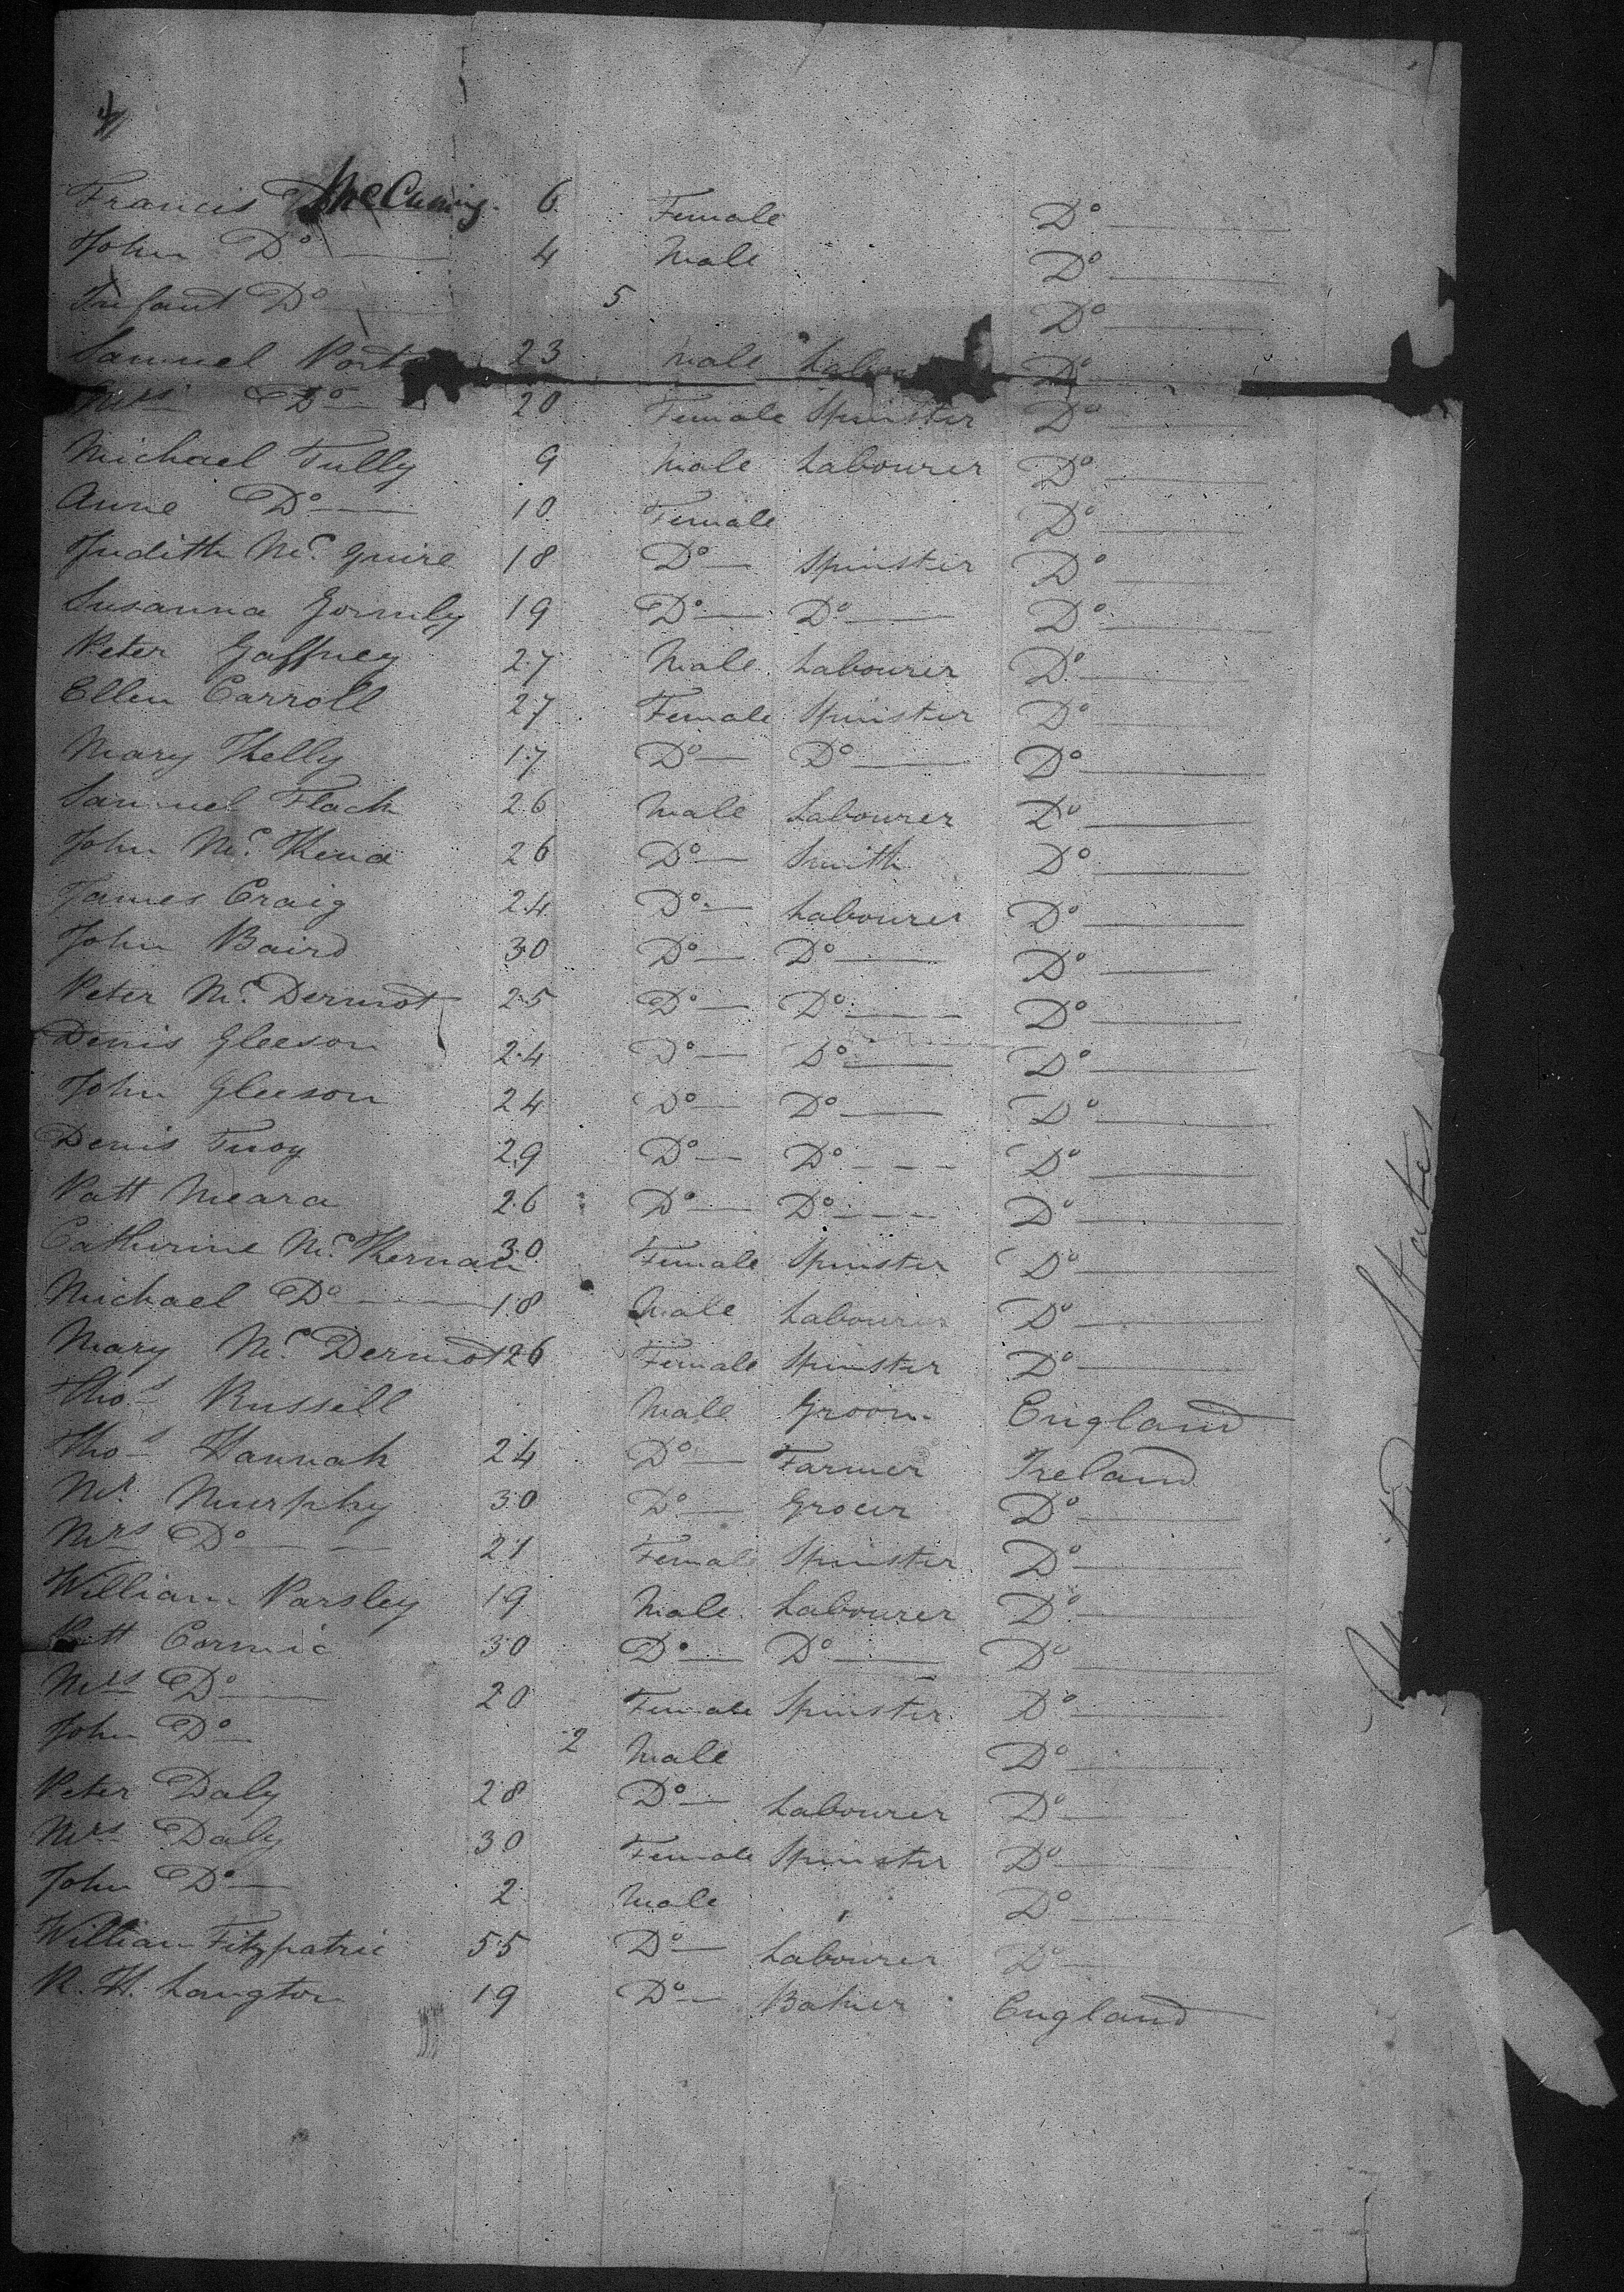 4
Francis McCuming 6 Female Do
John Do 4 Male Do
Infant Do 5 Do
Samuel Port 23 Male Labou Do
Mrs Do 20 Female Spinster Do
Michael Tully 9 Male Labourer Do
Anne Do 10 Female Do
Judith Mc Guire 18 Do Spinster Do
Susanna Gormly 19 Do Do Do
Peter Gaffney 27 Male Labourer Do
Ellen Carroll 27 Female Spinster Do
Mary Kelly 17 Do Do Do
Samuel Flack 26 Male Labourer Do
John Mc Kena 26 Do Smith Do
James Craig 24 Do Labourer Do
John Baird 30 Do Do Do
Peter Mc Dermot 25 Do Do Do
Denis Gleeson 24 Do Do Do
John Gleeson 24 Do Do Do
Denis Tuoy 29 Do Do Do
Patt Meara 26 Do Do Do
Catherine Mc Kernan 30 Female Spinster Do
Michael Do 18 Male Labourer Do
Mary Mc Dermot 26 Female Spinster Do
Thos Russell Male Groom England
Thos Hannah 24 Do Farmer Ireland
Mr Murphy 30 Do Grocer Do
Mrs Do 27 Female Spinster Do
William Parsley 19 Male Labourer Do
Patt Cormic 30 Do Do Do
Mrs Do 20 Female Spinster Do
John Do 2 Male Do
Peter Daly 28 Do Labourer Do
Mrs Daly 30 Female Spinster Do
John Do 2 Male Do
William Fitzpatric 55 Do Labourer Do
R. H. Langton 19 Do Baker England
States